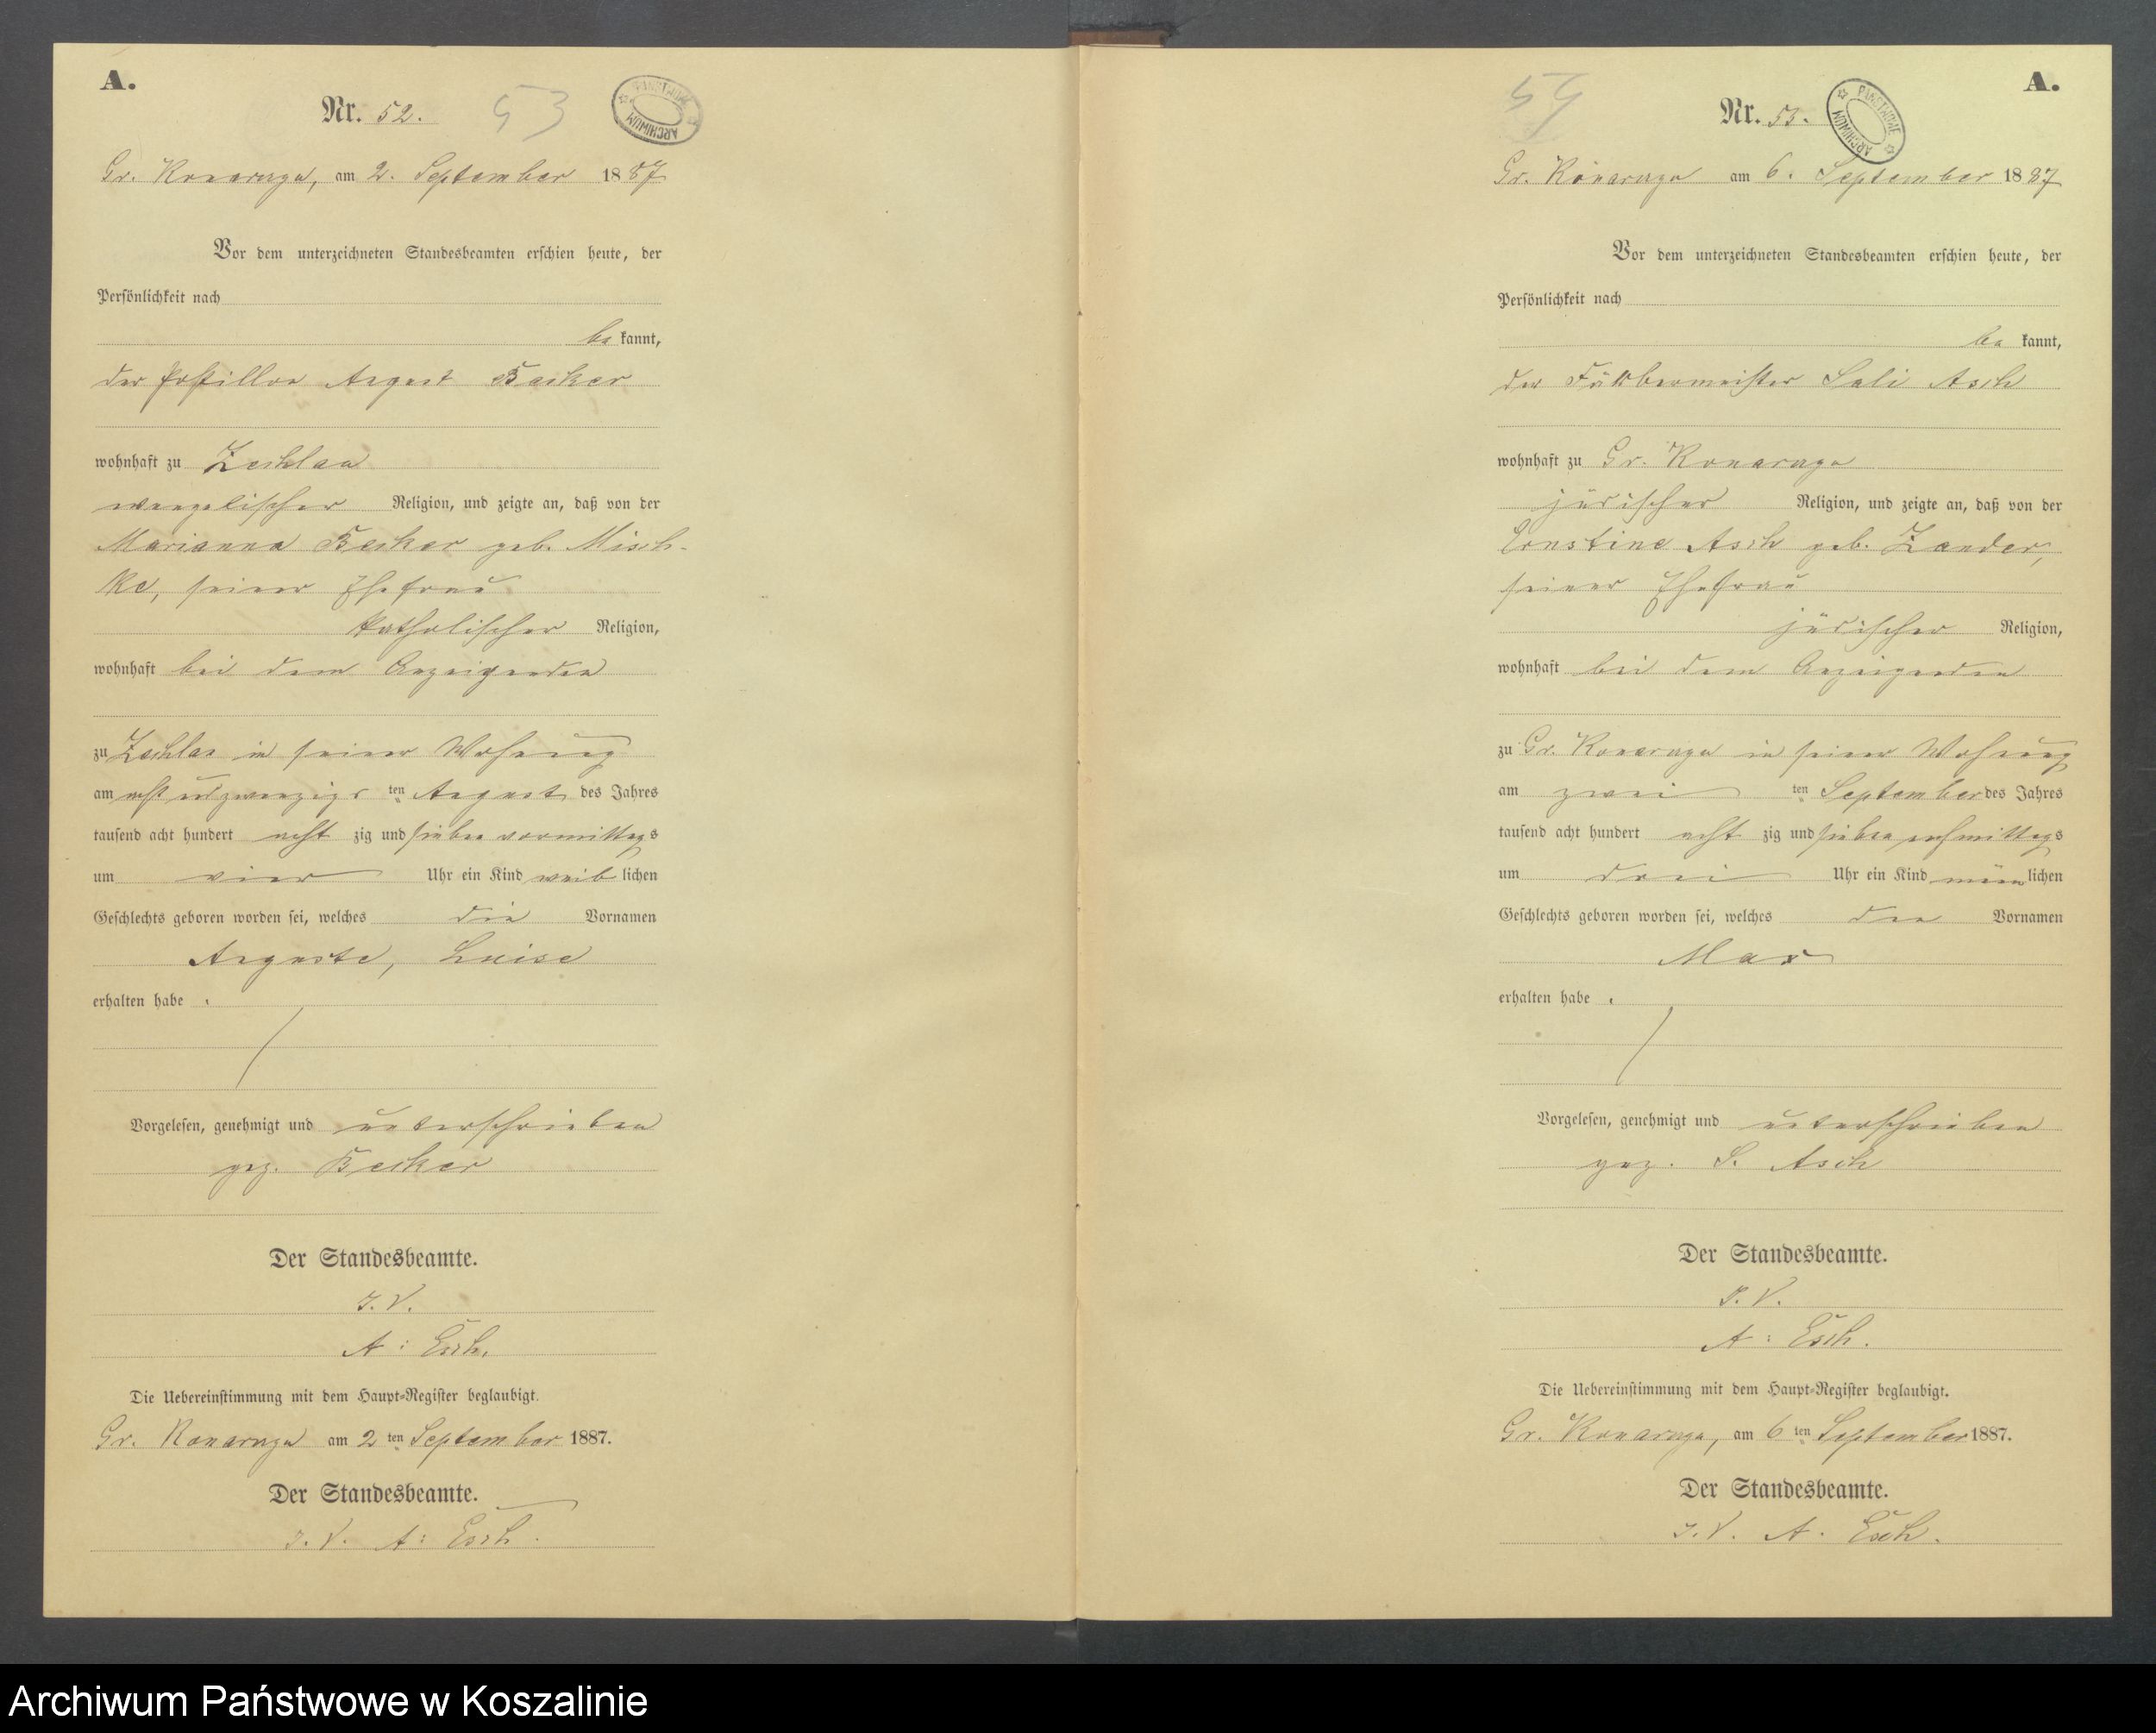 A.
Nr. 52. 53
PAŃSTWOWE ARCHIWUM
Gr. Konarzyn, am 2. September 1887
Vor dem unterzeichneten Standesbeamten erschien heute, der
Persönlichkeit nach
be kannt,
der Postillon August Becker
wohnhaft zu Zechlau
evangelischer Religion, und zeigte an, daß von der
Marianna Becker geb. Misch-
ke, seiner Ehefrau
katholischer Religion,
wohnhaft bei dem Anzeigenden
zu Zechlau in seiner Wohnung
am acht und zwanzigs ten August des Jahres
tausend acht hundert acht zig und sieben vormittags
um vier Uhr ein Kind weib lichen
Geschlechts geboren worden sei, welches die Vornamen
Auguste, Luise
erhalten habe.
Vorgelesen, genehmigt und unterschrieben
gez. Becker
Der Standesbeamte.
I. V.
A: Esch.
Die Uebereinstimmung mit dem Haupt-Register beglaubigt.
Gr. Konarzyn am 2 ten September 1887.
Der Standesbeamte.
I. V. A: Esch.
A.
54
Nr. 53.
PAŃSTWOWE ARCHIWUM
Gr. Konarzyn am 6. September 1887
Vor dem unterzeichneten Standesbeamten erschien heute, der
Persönlichkeit nach
be kannt,
der Sali Asch
wohnhaft zu Gr. Konarzyn
jüdischer Religion, und zeigte an, daß von der
Ernstine Asch geb. Zander,
seiner Ehefrau
jüdischer Religion,
wohnhaft bei dem Anzeigenden
zu Gr. Konarzyn in seiner Wohnung
am zwei ten September des Jahres
tausend acht hundert acht zig und sieben nachmittags
um drei Uhr ein Kind männ lichen
Geschlechts geboren worden sei, welches den Vornamen
Max
erhalten habe.
Vorgelesen, genehmigt und unterschrieben
gez. S. Asch
Der Standesbeamte.
I. V.
A: Esch.
Die Uebereinstimmung mit dem Haupt-Register beglaubigt.
Gr. Konarzyn, am 6 ten September 1887.
Der Standesbeamte.
I. V. A. Esch.
Archiwum Państwowe w Koszalinie